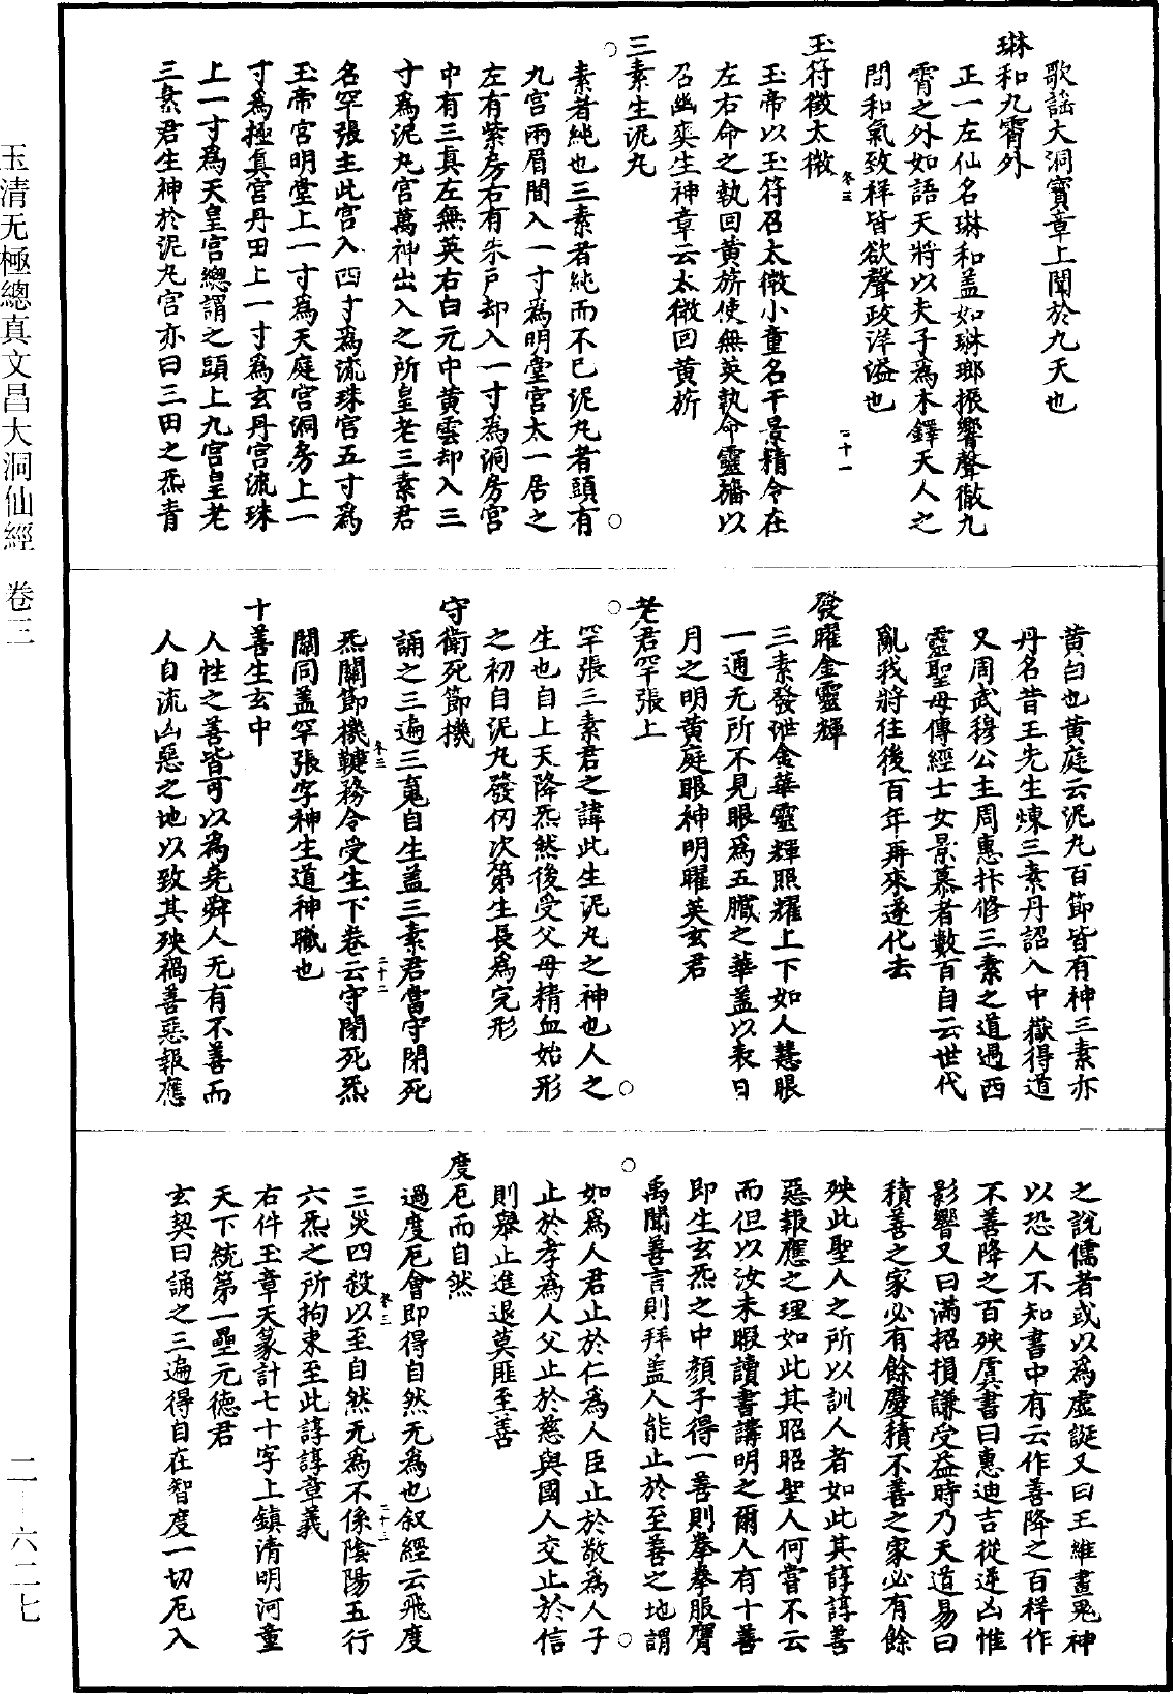 歌謡大洞寶章上聞於九天也
琳和九霄外
正一左仙名琳和盖如琳瑯振響聲徹九
霄之外如語天將以夫子爲木鐸天人之
間和氣致祥皆欲聲政洋溢也
玉符徵太微
玉帝以玉符召太微小童名干景精令在
左右命之執回黄旂使無英執命靈旛以
召幽爽生神章云太微回黄旂
三素生泥丸
素者純也三素者純而不已泥丸者頭有
九宮兩眉間入一寸爲明堂宮太一居之
左有紫房右有朱户却入一寸爲洞房宮
中有三真左無英右白元中黄雲却入三
寸爲泥丸宮萬神出入之所皇老三素君
名罕張主此宮入四寸爲流珠宮五寸爲
玉帝宮明堂上一寸爲天庭宮洞房上一
寸爲極真宮丹田上一寸爲玄丹宮流珠
上一寸爲天皇宮總謂之頭上九宮皇老
三素君生神於泥丸宮亦曰三田之炁青
黄白也黄庭云泥丸百節皆有神三素亦
丹名昔王先生煉三素丹詔入中嶽得道
又周武穆公主周惠抃修三素之道遇西
靈聖母傳經士女景慕者數百自云世代
亂我將往後百年再來遂化去
發曜金靈輝
三素發泄金華靈輝照耀上下如人慧眼
一通无所不見眼爲五臟之華盖以表日
月之明黄庭眼神明曜英玄君
老君罕張上
罕張三素君之諱此生泥丸之神也人之
生也自上天降炁然後受父母精血始形
之初自泥丸發仞次第生長爲完形
守衛死節機
誦之三遍三䰟自生盖三素君當守閉死
炁關節機鍵務令受生下卷云守閉死炁
關同盖罕張字神生道神職也
十善生玄中
人性之善皆可以爲堯舜人无有不善而
人自流凶惡之地以致其殃禍善惡報應
之說儒者或以爲虚誕又曰王維畫鬼神
以恐人不知書中有云作善降之百祥作
不善降之百殃虞書曰惠迪吉從逆凶惟
影響又曰滿招損謙受益時乃天道易曰
積善之家必有餘慶積不善之家必有餘
殃此聖人之所以訓人者如此其諄諄善
惡報應之理如此其昭昭聖人何嘗不云
而但以汝未暇讀書講明之爾人有十善
即生玄炁之中顏子得一善則拳拳服膺
禹聞善言則拜盖人能止於至善之地謂
如爲人君止於仁爲人臣止於敬爲人子
止於孝爲人父止於慈與國人交止於信
則舉止進退莫匪至善
度厄而自然
過度厄會即得自然无爲也叙經云飛度
三災四殺以至自然无爲不係隂陽五行
六炁之所拘束至此諄諄章義
右件玉章天篆計七十字上鎮清明河童
天下統第一壘元徳君
玄契曰誦之三遍得自在智度一切厄入
玉清无極總真文昌大洞仙經 卷三
二—六二七